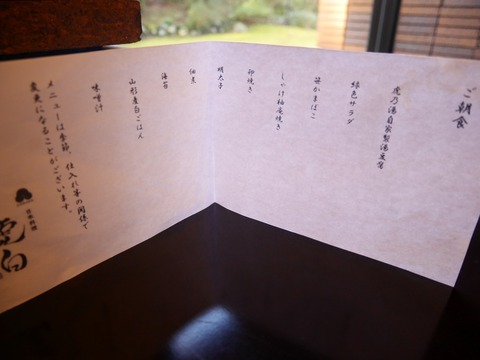 ご朝食
虎乃湯自家製湯豆腐
緑色サラダ
笹かまぼこ
しゃけ柚庵焼き
卵焼き
明太子
佃煮
海苔
山形産白ごはん
味噌汁
メニューは季節、仕入れ等の関係で
変更になることがございます。
日本料理
虎白